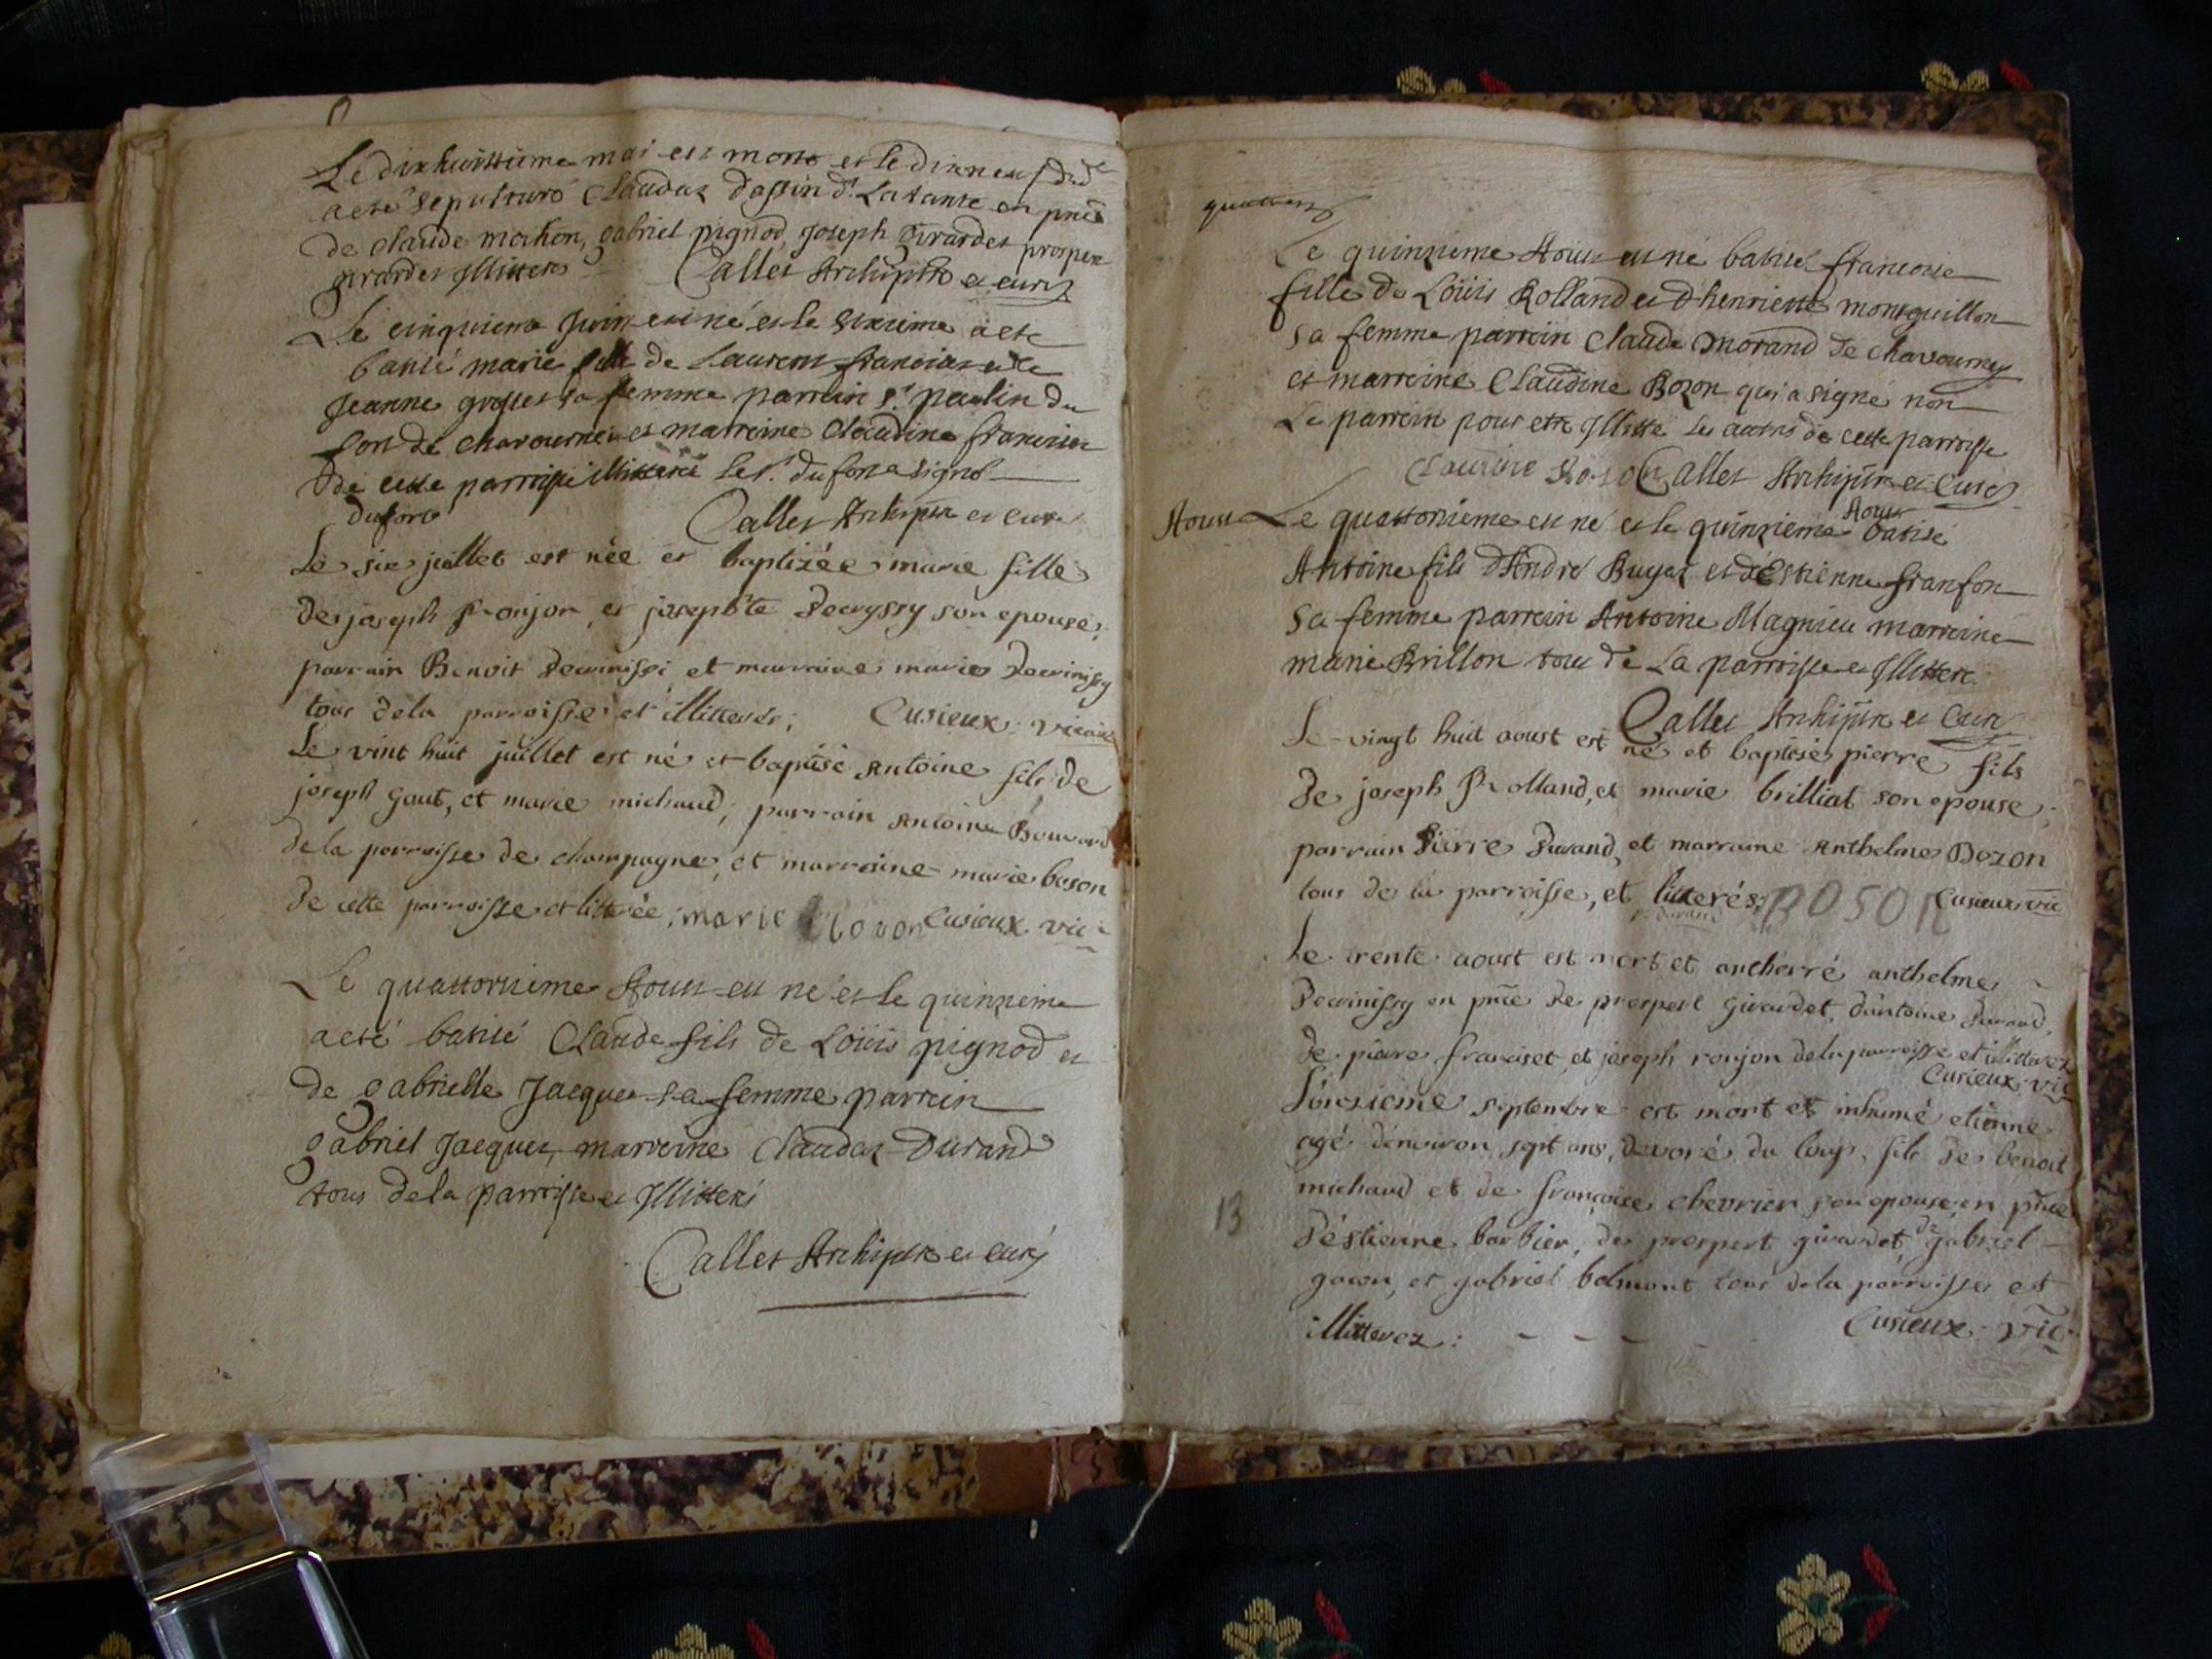 Le dixhuittieme mai est mort et le dixneuf dud
a eté sepulturé Claudaz dassin de Latante en pnce
de Claude mochon, gabriel pignod, joseph Girardet prosper
girardet Illitteres Callet Archiptre et curé
Le cinquieme Juin est né et le sixieme a eté
batisé marie fille de Laurent franciset et de
Jeanne gros sa femme parrein sr paulin du
fort de chavournei et marreine Claudine franciset
de cette parroisse illitteré le sr. dufort a signé
dufort Callet Archiptre et curé
Le six juillet est née et baptizée marie fille
de joseph Ronjon et josephte Decrissy son epouse,
parrain Benoit Decrinissi et marraine marie Decrinissy
tous de la parroisse et illitterés; Cusieux vicaire
Le vint huit juillet est né et baptisé Antoine fils de
joseph gout, et marie michaud, parrain Antoine Bouvard
de la parroisse de champagne, et marraine marie boson
de cette parroisse et litterée; marie boson Cusieux vic
Le quattorzieme Aoust est né et le quinzeime
a eté batisé Claude fils de Loüis pignod et
de gabrielle Jacquet sa femme parrein
gabriel Jacquet, marreine Claudaz Durand
tous de la parroisse et Illitterés
Callet Archiptre et curé
Le quinzieme Aoust est né batisé francoise
fille de Loüis Rolland et d'henriette montguillon
sa femme parrein Claude Morand de chavournay
et marreine Claudine Bozon qui a signé non
Le parrein pour etre Illitté les autres de cette parroisse
Claudine Boson Callet Archiptre et Curé
Aoust Le quattorzieme est né et le quinzieme Aoust batisé
Antoine fils d'André Buyat et d'Estienne franfon
sa femme parrein Antoine Magnieu marreine
marie Brillon tous de la parroisse et Illitteré
Callet Archiptre et Curé
Le vingt huit aoust est né et baptisé pierre fils
de joseph Rolland, et marie brilliat son epouse;
parrain Pierre Durand, et marraine Anthelme Bozon
tous de la parroisse, et litterés; BOSON Cusieux vic
p. durand
Le trente aoust est mort et antherré anthelme
Decrinissy en pnce de prospert girardet, d'antoine Durand,
de pierre franciset, et joseph ronjon de la parroisse et illitterez
Cusieux vic
L'onzieme septembre est mort et inhumé etienne
agé d'environ sept ans, devoré du loup, fils de benoit
michaud et de françoise chevrier son epouse, en pnce
13 d'éstienne barbier, de prospert girardet de gabriel
gacon, et gabriel belmont tous de la parroisse et
illitterez: Cusieux vic